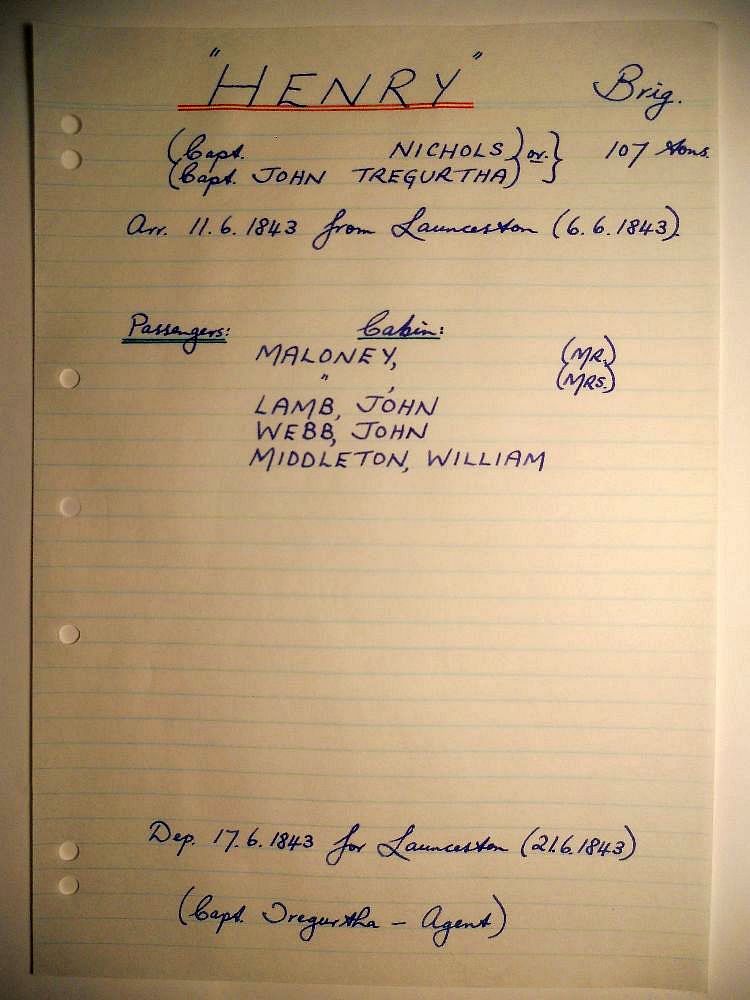 "HENRY" Brig.
(Capt. NICHOLS) or } 107 tons.
(Capt. JOHN TREGURTHA)
Arr. 11.6.1843 from Launceston (6.6.1843)
Passengers: Cabin:
MALONEY, (MR.)
" , (MRS.)
LAMB, JOHN
WEBB, JOHN
MIDDLETON, WILLIAM
Dep. 17.6.1843 for Launceston (21.6.1843)
(Capt. Tregurtha - Agent)